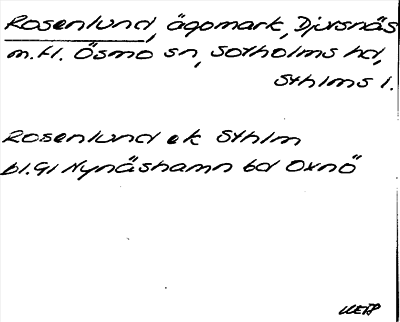 Rosenlund, ägomark, Djursnäs
m.fl. Ösmo sn, Sotholms hd,
Sthlms l.
Rosenlund ek Sthlm
bl.91 Nynäshamn bd Oxnö